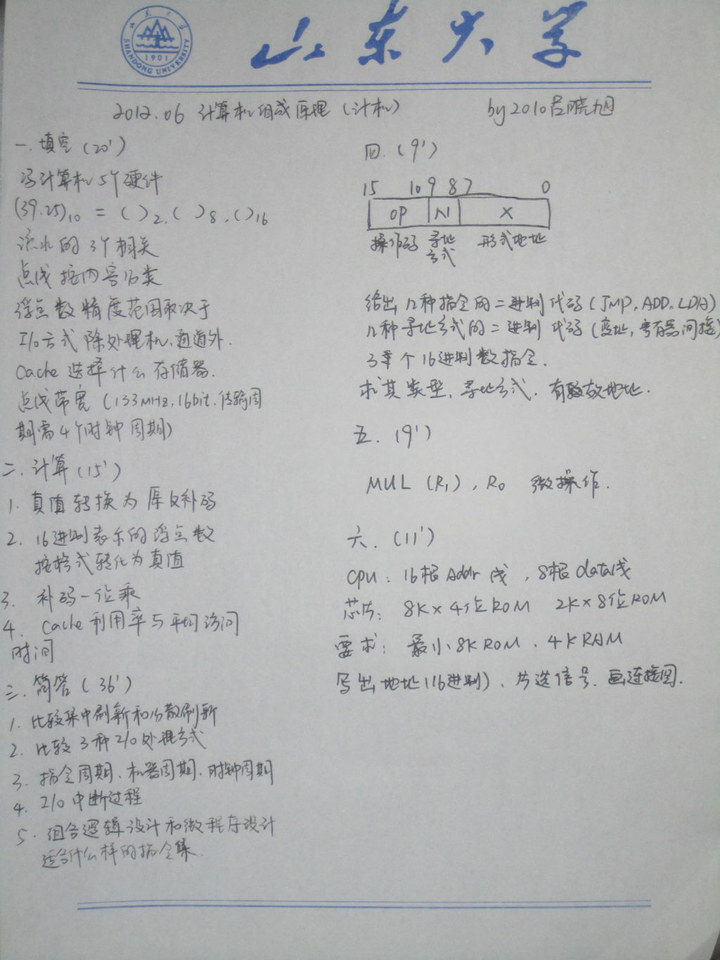 山东大学
SHANDONG UNIVERSITY
1901
2012.06 计算机组成原理（计机） by 2010吕晓旭
一. 填空（20'）
写计算机5个硬件
(39.25)10 = ( )2, ( )8, ( )16
流水的3个相关
总线按内容分类
浮点数精度范围取决于
I/O方式除处理机、通道外.
Cache 选择什么存储器.
总线带宽（133MHz, 16bit, 传输周
期需4个时钟周期）
二. 计算（15'）
1. 真值转换为原反补码
2. 16进制表示的浮点数
按格式转化为真值
3. 补码一位乘
4. Cache利用率与平均访问
时间
三. 简答（36'）
1. 比较集中刷新和分散刷新
2. 比较3种I/O处理方式
3. 指令周期、机器周期、时钟周期
4. I/O中断过程
5. 组合逻辑设计和微程序设计
适合什么样的指令集
四.（9'）
15 10 9 8 7 0
OP N X
操作码 寻址方式 形式地址
给出几种指令的二进制代码（JMP, ADD, LDA）
几种寻址方式的二进制代码（变址, 寄存器, 间接）
3个16进制数指令.
求其类型, 寻地方式, 有效地址.
五.（9'）
MUL (R1), R0 微操作.
六.（11'）
CPU: 16根Addr线, 8根data线
芯片: 8K×4位ROM 2K×8位ROM
要求: 最小8K ROM, 4K RAM
写出地址（16进制）、片选信号、画连接图.